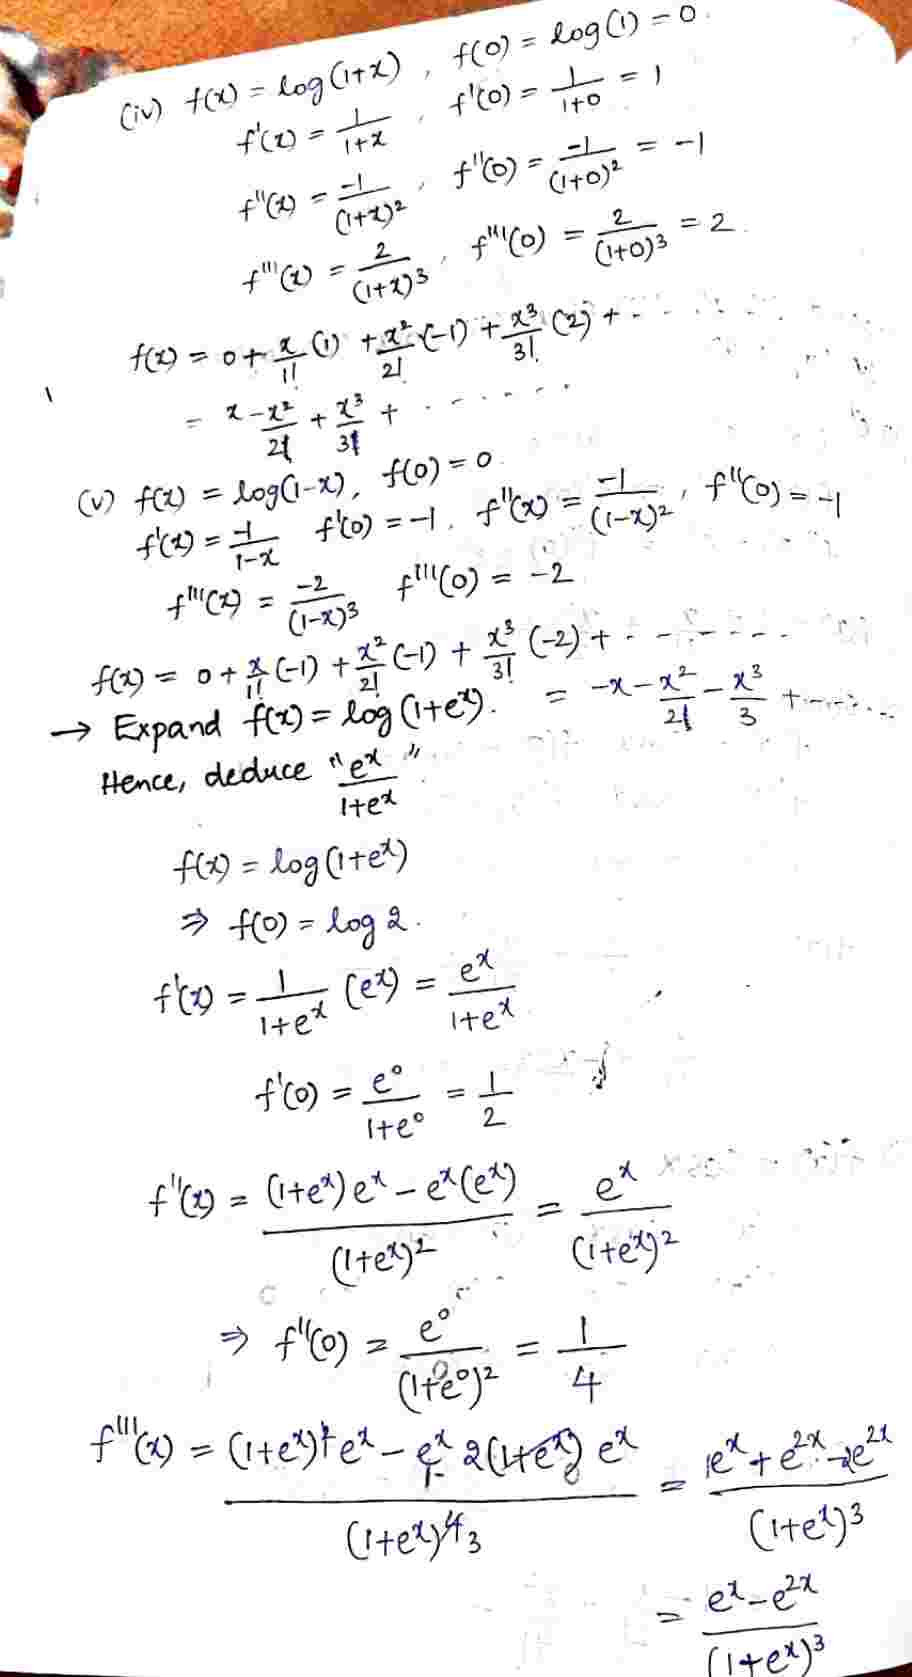 (iv) f(x) = log(1+x) , f(0) = log(1) = 0.
f'(x) = 1/(1+x) , f'(0) = 1/(1+0) = 1
f''(x) = -1/(1+x)² , f''(0) = -1/(1+0)² = -1
f'''(x) = 2/(1+x)³ , f'''(0) = 2/(1+0)³ = 2.
f(x) = 0 + x/1! (1) + x²/2! (-1) + x³/3! (2) + ......
= x - x²/2! + x³/3! + ......
(v) f(x) = log(1-x), f(0) = 0.
f'(x) = -1/(1-x) f'(0) = -1. f''(x) = -1/(1-x)², f''(0) = -1
f'''(x) = -2/(1-x)³ f'''(0) = -2
f(x) = 0 + x/1! (-1) + x²/2! (-1) + x³/3! (-2) + ......
= -x - x²/2! - x³/3 + ......
→ Expand f(x) = log(1+eˣ).
Hence, deduce "eˣ/(1+eˣ)".
f(x) = log(1+eˣ)
⇒ f(0) = log 2.
f'(x) = 1/(1+eˣ) (eˣ) = eˣ/(1+eˣ)
f'(0) = e⁰/(1+e⁰) = 1/2
f''(x) = ((1+eˣ)eˣ - eˣ(eˣ))/(1+eˣ)² = eˣ/(1+eˣ)²
⇒ f''(0) = e⁰/(1+e⁰)² = 1/4
f'''(x) = ((1+eˣ)eˣ - eˣ 2(1+eˣ) eˣ)/(1+eˣ)³ = (eˣ + e²ˣ - 2e²ˣ)/(1+eˣ)³
= (eˣ - e²ˣ)/(1+eˣ)³